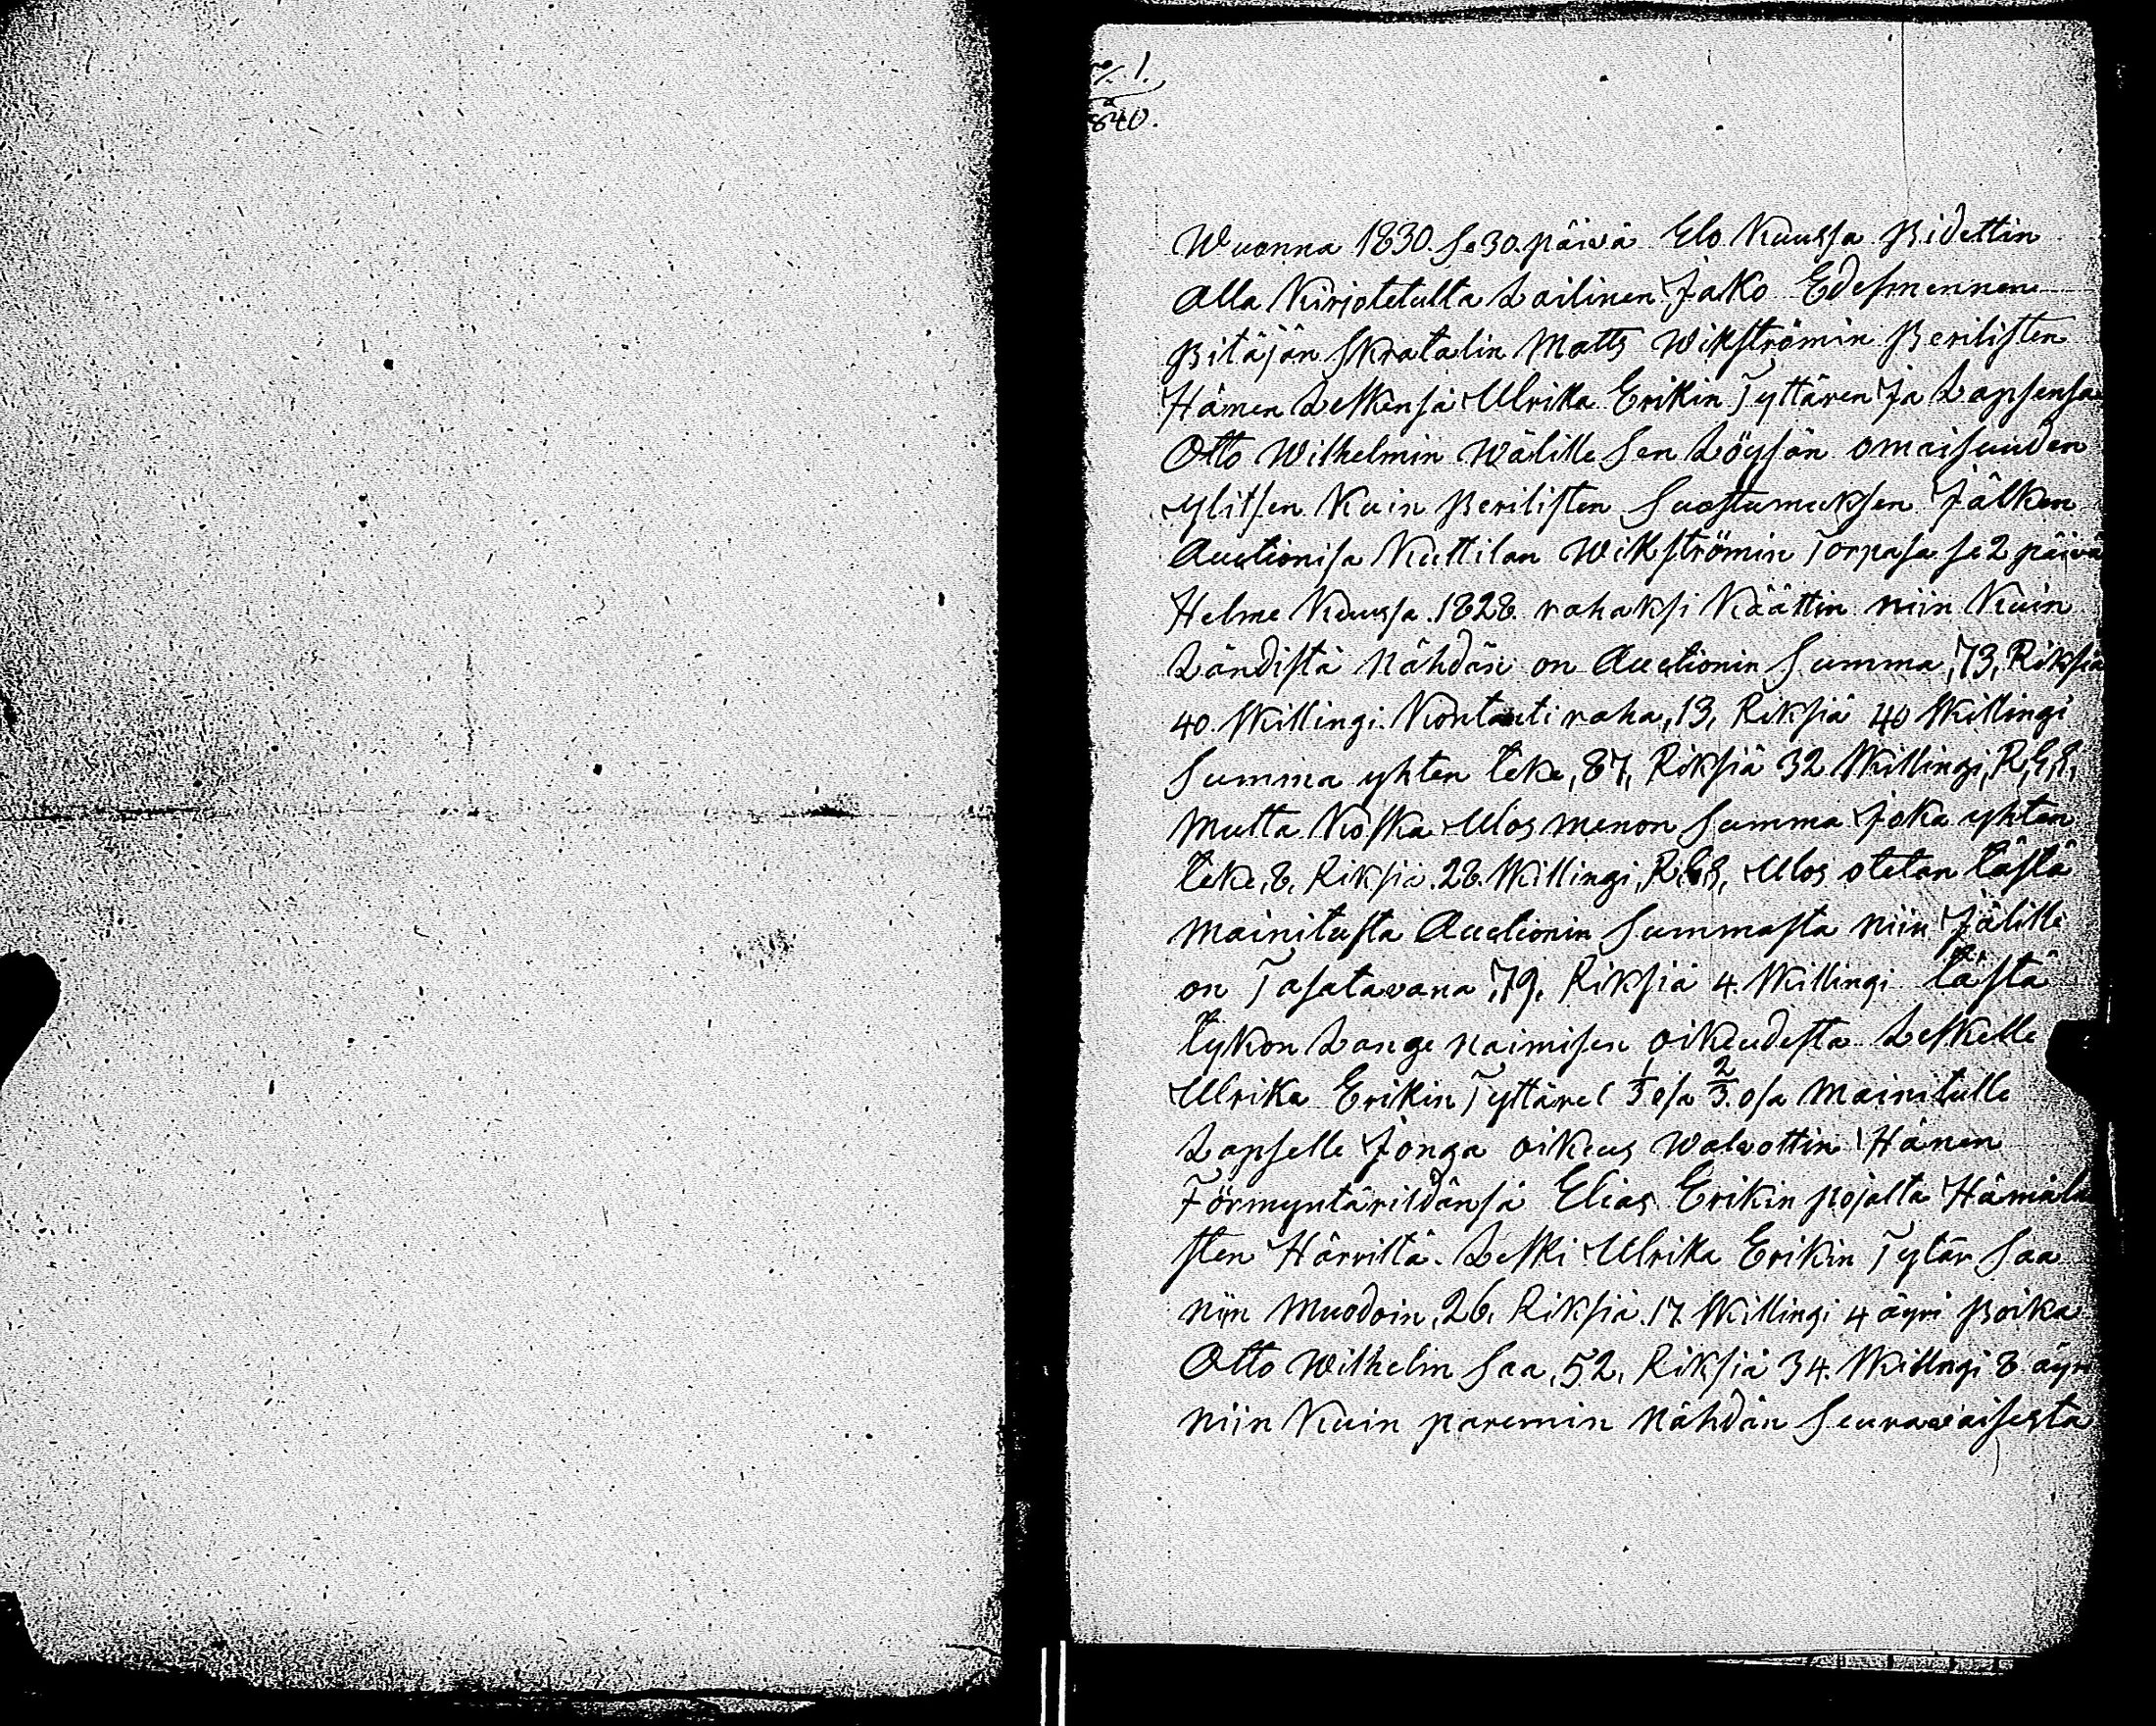 N:o 1.
840.
Wuonna 1830. se 30. päivä Elo Kuussa Pidettin
alla Kirjotetulta Lailinen Jako Edesmennen
Pitäjän Skrätälin Matts Wikströmin Perilisten
Hänen Leskensä Ulrika Erikin Tyttären Ja Lapsensa
Otto Wilhelmin Wälille sen Löysän omaisuuden
ylitsen Kuin Perilisten Suostumuksen Jälken
Auctionisa Kuttilan Wikströmin Torpasa se 2 päivä
Helme Kuussa 1828. rahaksi Käättin niin Kuin
Ländistä Nähdän on Auctionin Summa, 73, Riksiä
40. Skillingi. Kontanti raha, 13, Riksiä 40 Skillingi
Summa yhten teke, 87, Riksiä 32 Skillingi, R, G, S,
Mutta Koska Ulos menon Summa Joka yhten
teke, 8, Riksiä. 28. Skillingi, R, G, S, Ulos otetan tästä
Mainitusta Auctionin Summasta niin Jälille
on Tasatavana, 79, Riksiä 4. Skillingi tästä
tykon Lange naimisen oikeudesta Leskelle
Ulrika Erikin Tyttärel 1/3 osa 2/3. osa Mainitulle
Lapselle Jonga oikeus Walvottin Hänen
Förmyntärildänsä Elias Erikin pojalta Hämälä
sten Härviltä. Leski Ulrika Erikin Tytär Saa
niin Muodoin, 26, Riksiä. 17. Skillingi 4 äyri Poika
Otto Wilhelm Saa, 52, Riksiä 34. Skillingi 8 äyri
niin Kuin paremin Nähdän Seuravaisesta